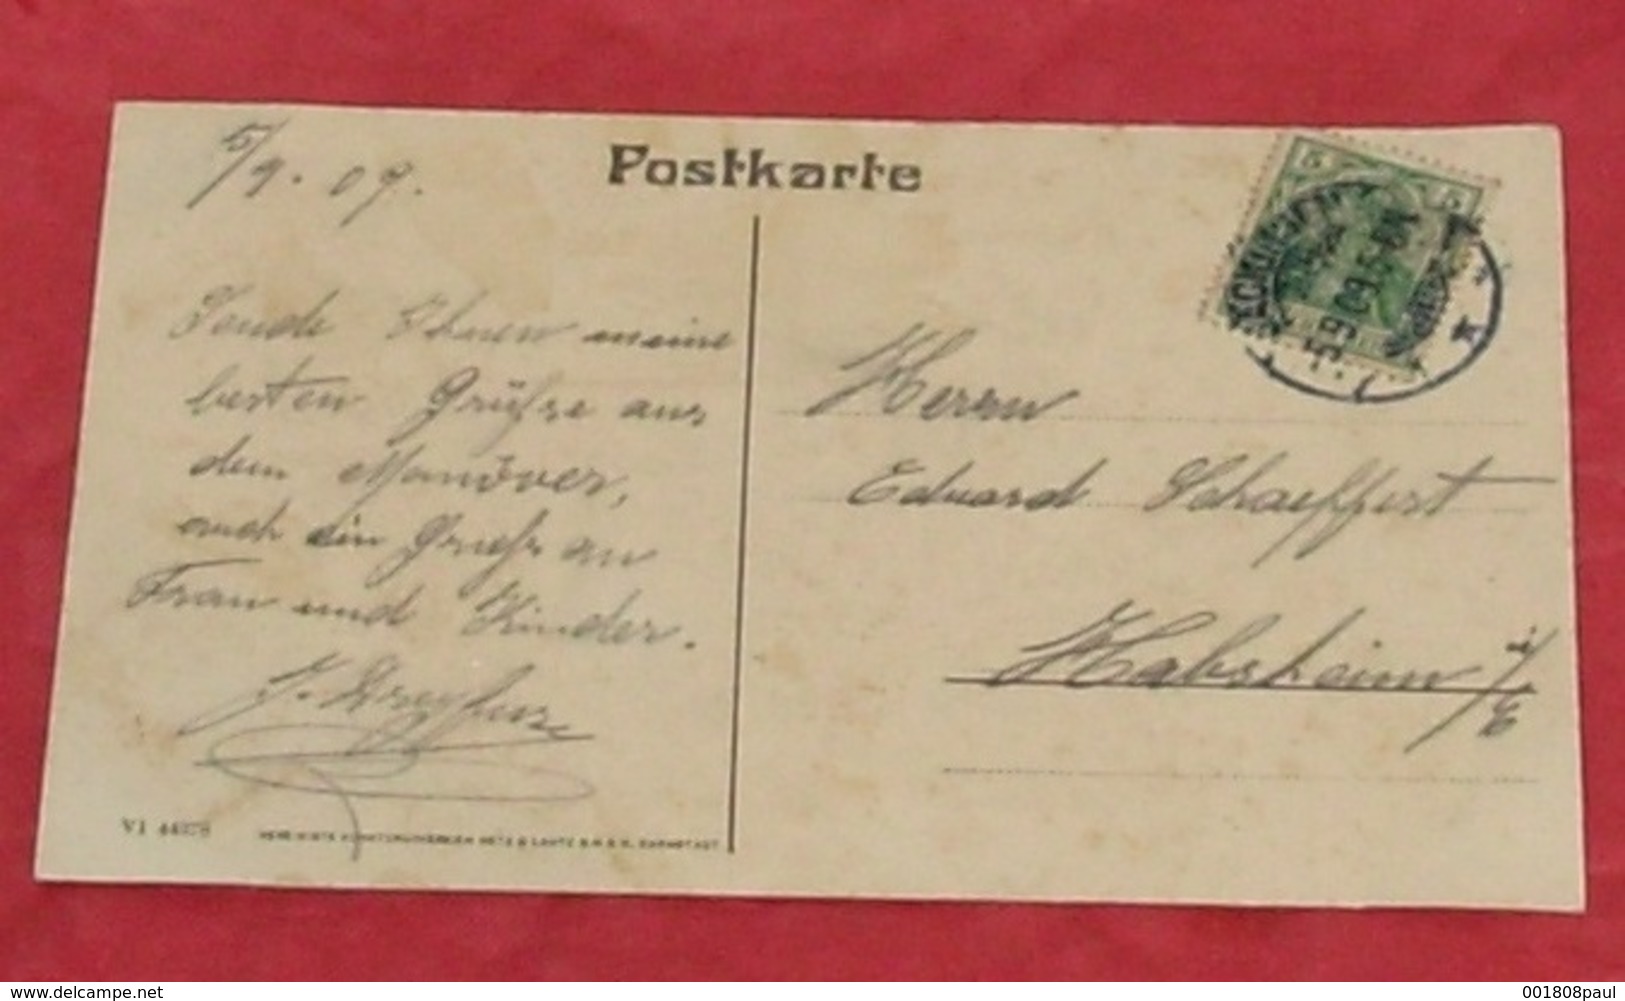 Postkarte
5/9. 09.
Sende Ihnen meine
besten Grüsse aus
dem Manöver,
auch ein Gruss an
Frau und Kinder.
J. Dreyfus
Herrn
Eduard Schaeffert
Habsheim i/E
5
5
VI
DARMSTADT
http://www.delcampe.net
001808paul